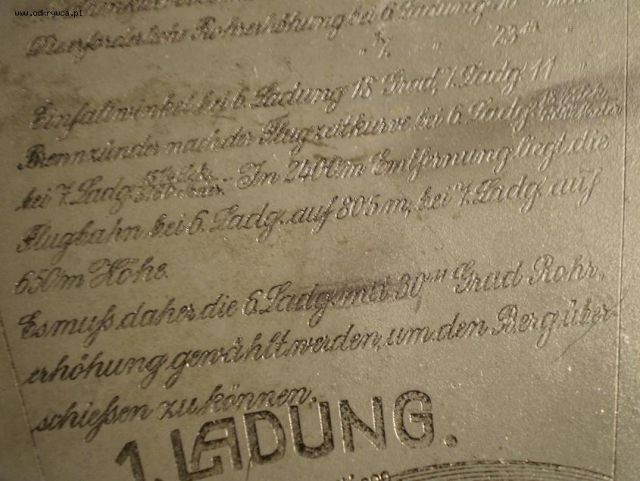 www.odkrywca.pl
Rohrerhöhung bei 6. Ladung
" 7. " 23
Einfallwinkel bei 6. Ladung 18 Grad, 7. Ladg. 11 "
Brennzünder nach der Flugzeitkurve bei 6. Ladg.
bei 7. Ladg. In 2400m Entfernung liegt die
Flugbahn bei 6. Ladg. auf 805 m, bei 7. Ladg. auf
650 m Höhe.
Es muß daher die 6. Ladg. mit 30 Grad Rohr-
erhöhung gewählt werden, um den Berg über-
schießen zu können.
1. LADUNG.